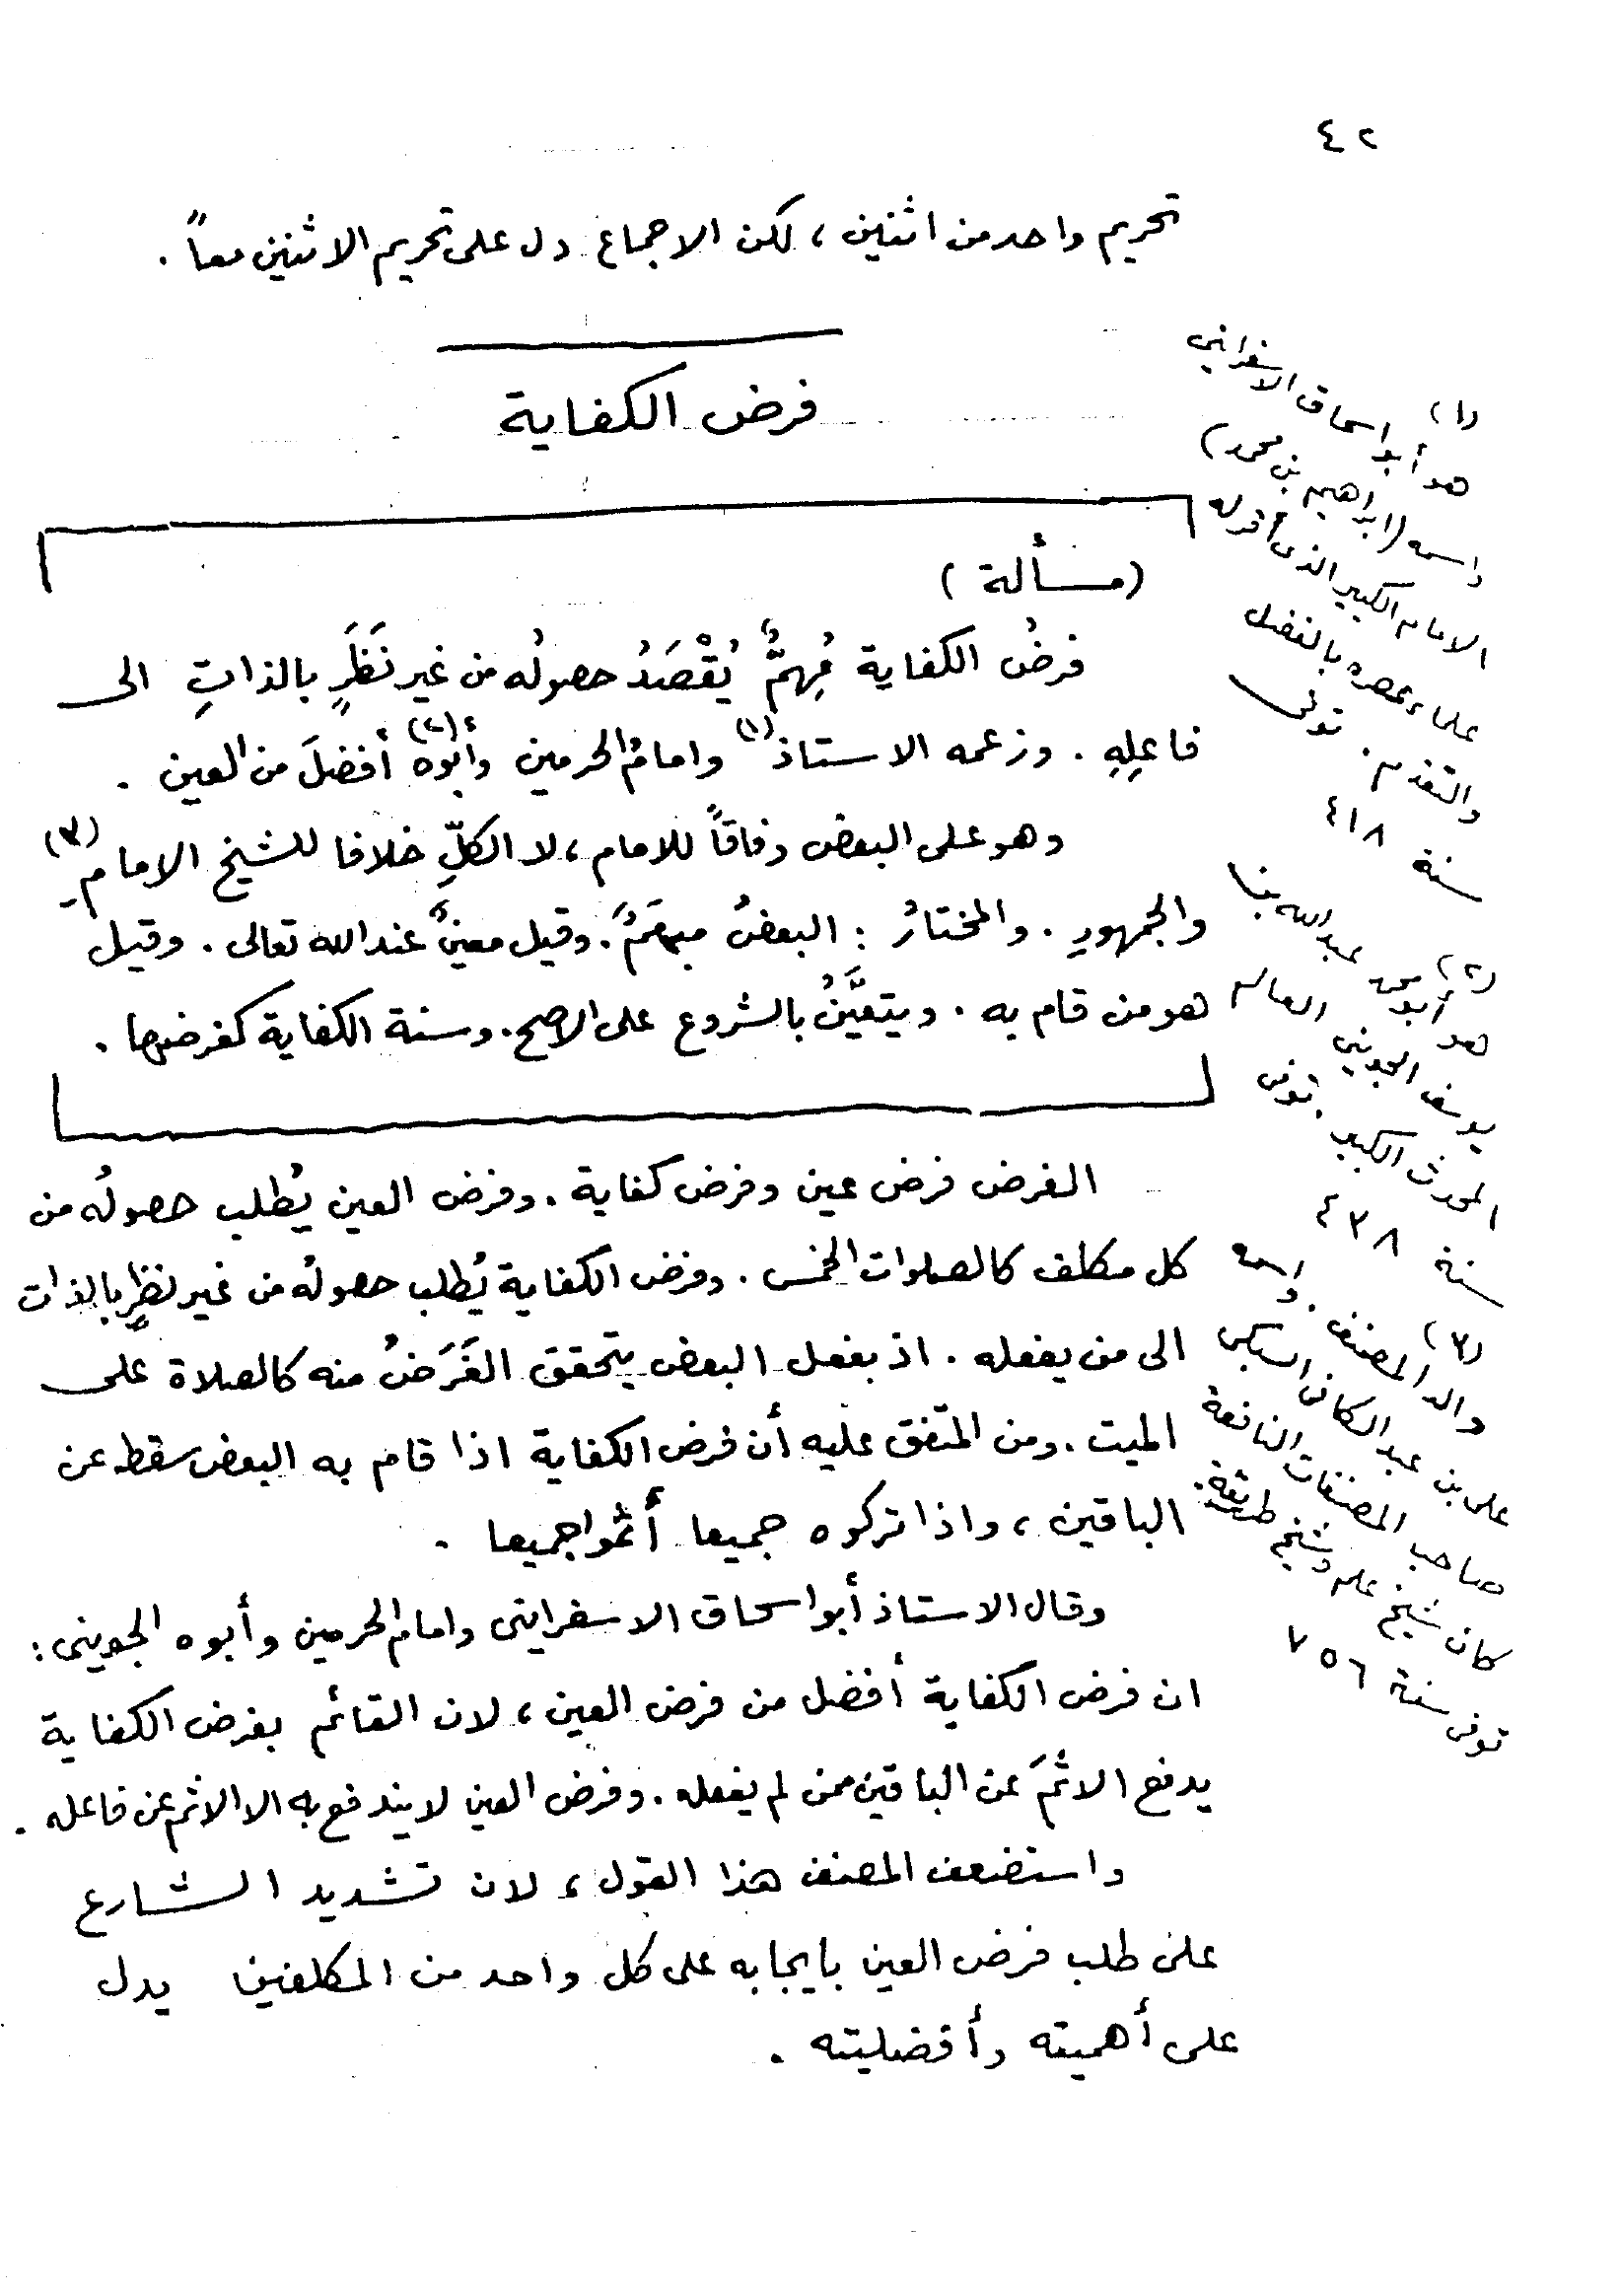 ٤٢
تحريم واحد من اثنين ، لكن الاجماع دل على تحريم الاثنين معاً .
فرض الكفاية
( مسألة )
فرضُ الكفاية مُهِمٌّ يُقْصَدُ حصولُه من غير نَظَرٍ بالذاتِ الى
فاعلِهِ . وزعمه الاستاذ (١) وامامُ الحرمين وأبوه (٢) أفضلَ من العين .
وهو على البعض وفاقاً للامام ، لا الكلِّ خلافا للشيخ الامام (٣)
والجمهورِ . والمختارُ : البعضُ مبهَمٌ . وقيل معينٌ عند الله تعالى . وقيل
هو من قام به . ويتعيَّنُ بالشروع على الاصح . وسنة الكفاية كفرضها .
الفرض فرض عين وفرض كفاية . وفرض العين يُطلب حصولُه من
كل مكلف كالصلوات الخمس . وفرض الكفاية يُطلب حصولُه من غير نظرٍ بالذات
الى من يفعله . اذ بفعل البعض يتحقق الغَرَضُ منه كالصلاة على
الميت . ومن المتفق عليه أن فرض الكفاية اذا قام به البعض سقط عن
الباقين ، واذا تركوه جميعا أثموا جميعا .
وقال الاستاذ أبو اسحاق الاسفرايني وامام الحرمين وأبوه الجويني :
ان فرض الكفاية أفضل من فرض العين ، لان القائم بفرض الكفاية
يدفع الاثمَ عن الباقين ممن لم يفعله . وفرض العين لا يندفع به الا الاثم عن فاعله .
واستضعف المصنف هذا القول ، لان تشديد الشارع
على طلب فرض العين بايجابه على كل واحد من المكلفين يدل
على أهميته وأفضليته .
(١)
هو أبو اسحاق الاسفرايني
واسمه (ابراهيم بن محمد)
الامام الكبير الذى أقر له
علماء عصره بالفضل
والتقدم . توفى
سنة ٤١٨
(٢)
هو أبو محمد عبد الله بن
يوسف الجويني العالم
المحدث الكبير . توفى
سنة ٤٣٨
(٣)
والد المصنف . واسمه
على بن عبد الكافى السبكى
صاحب المصنفات النافعة
كان شيخ علم وشيخ طريقة .
توفى سنة ٧٥٦